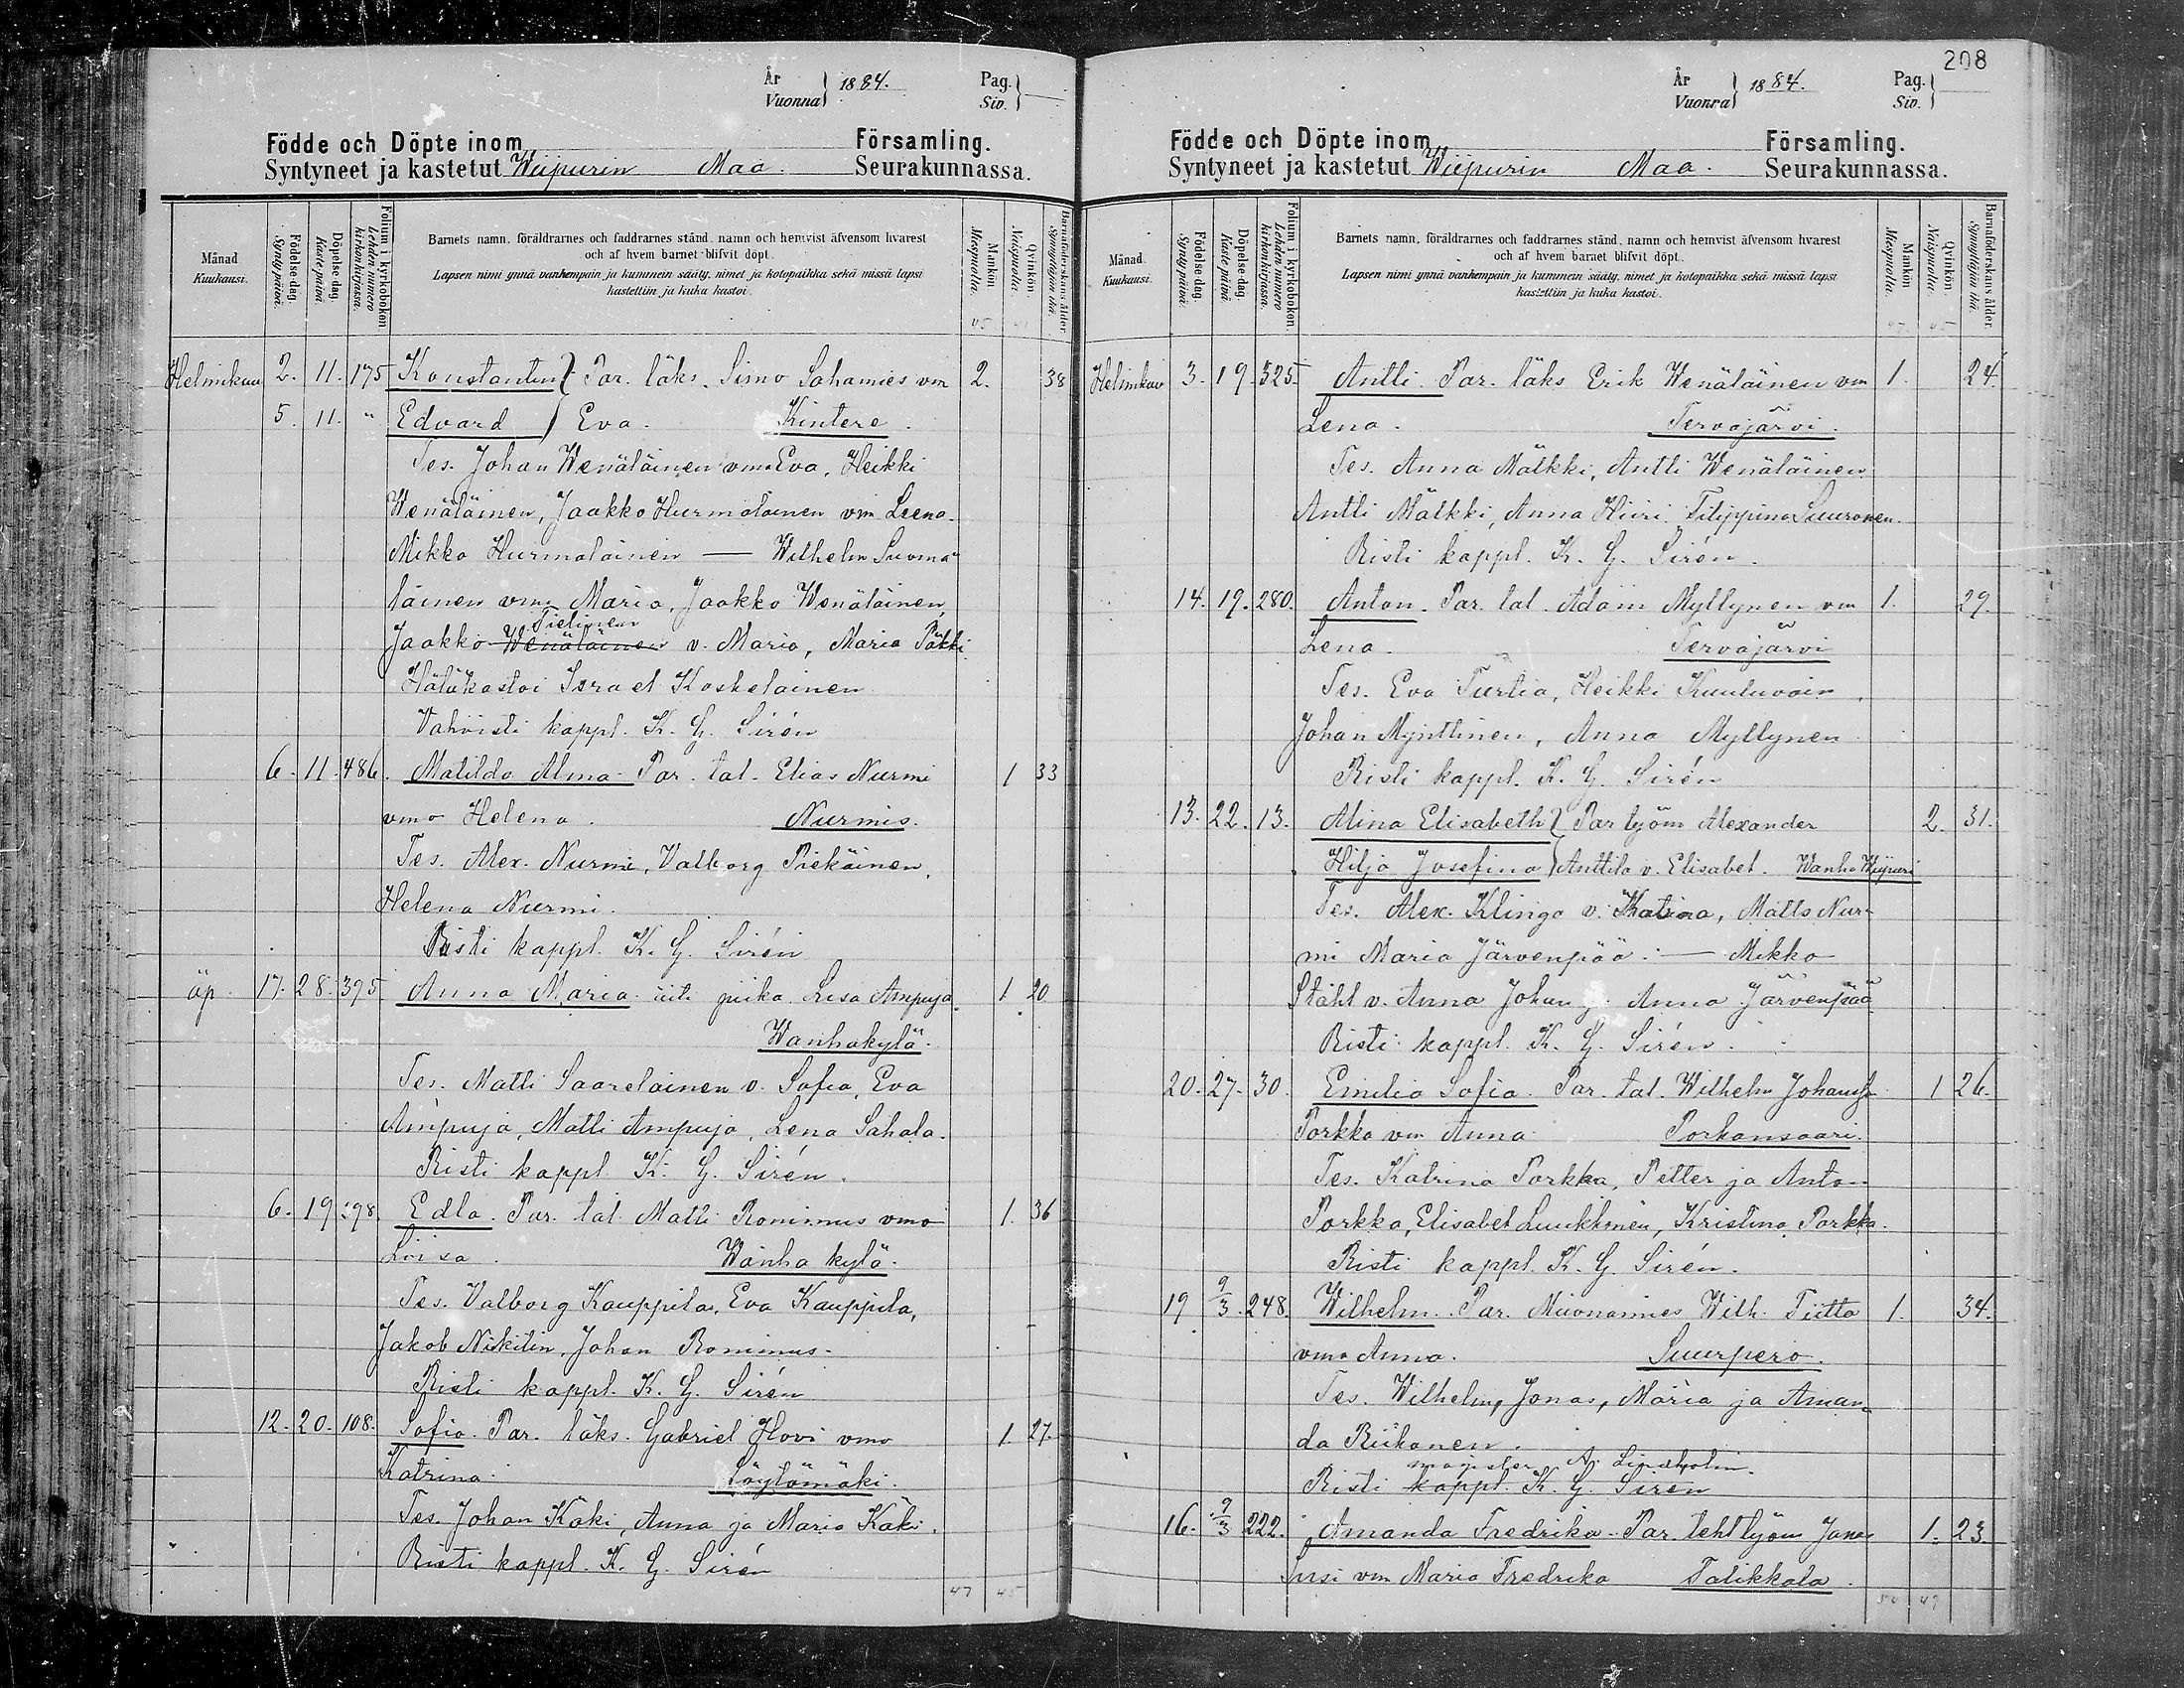 År
Vuonna } 1884.
Pag.
Siv. }
Födde och Döpte inom Församling.
Syntyneet ja kastetut Wiipurin Maa. Seurakunnassa.
Månad
Kuukausi.
Födelse dag.
Syntypäivä.
Döpelse dag.
Kastepäivä.
Folium i kyrkoboken
Lehden numero
kirkonkirjassa.
Barnets namn, föräldrarnes och faddrarnes stånd, namn och hemvist äfvensom hvarest
och af hvem barnet blifvit döpt.
Lapsen nimi ynnä vanhempain ja kummein sääty, nimet ja kotopaikka sekä missä lapsi
kastettiin ja kuka kastoi.
Mankön
Miespuolia.
Qvinkön.
Naispuolia.
Barnaföderskans ålder
Synnyttäjän ikä.
45 41
Helmikuu 2. 11. 175 Konstantin } Par. läks. Simo Sahamies vm 2. 38
5. 11. " Edvard } Eva. Kintere.
Tes. Johan Wenäläinen vmo Eva, Heikki
Wenäläinen, Jaakko Hurmalainen vm Leena.
Mikko Hurmalainen — Wilhelm Suoma-
läinen vmo Maria, Jaakko Wenäläinen,
Tielinen
Jaakko Wenäläinen v. Maria, Maria Päkki.
Hätäkastoi Israel Koskelainen
Vahvisti kappl. K. G. Sirén
6. 11. 486. Matilda Alma. Par. tal. Elias Nurmi 1 33
vmo Helena. Nurmis.
Tes. Alex. Nurmi, Valborg Piekäinen,
Helena Nurmi.
Risti kappl. K. G. Sirén
äp. 17. 28. 395 Anna Maria. äiti piika Lisa Ampuja. 1. 20
Wanhakylä.
Tes. Matti Saarelainen v. Sofia, Eva
Ampuja, Matti Ampuja, Lena Sahala.
Risti kappl. K. G. Sirén.
6. 19. 398. Edla. Par. tal. Matti Ronimus vmo 1. 36
Loisa. Wanha kylä.
Tes. Valborg Kauppila, Eva Kauppila,
Jakob Nikitin, Johan Ronimus.
Risti kappl. K. G. Sirén
12. 20. 108. Sofia. Par. läks. Gabriel Hovi vmo 1. 27.
Katrina. Löytömäki.
Tes. Johan Käki, Anna ja Maria Käki.
Risti kappl. K. G. Sirén
47 45
208
År
Vuonna } 1884.
Pag.
Siv. }
Födde och Döpte inom Församling.
Syntyneet ja kastetut Wiipurin Maa. Seurakunnassa.
Månad.
Kuukausi.
Födelse dag.
Syntypäivä.
Döpelse dag.
Kastepäivä.
Folium i kyrkoboken
Lehden numero
kirkonkirjassa.
Barnets namn, föräldrarnes och faddrarnes stånd, namn och hemvist äfvensom hvarest
och af hvem barnet blifvit döpt.
Lapsen nimi ynnä vanhempain ja kummein sääty, nimet ja kotopaikka sekä missä lapsi
kastettiin ja kuka kastoi.
Mankön
Miespuolia.
Qvinkön.
Naispuolia.
Barnaföderskans ålder
Synnyttäjän ikä.
47 45
Helmikuu 3. 19. 325. Antti. Par. läks Erik Wenäläinen vm 1. 24.
Lena. Tervajärvi.
Tes. Anna Mälkki, Antti Wenäläinen
Antti Mälkki, Anna Hiiri. Filippina Suuronen.
Risti kappl. K. G. Sirén.
14. 19. 280. Anton. Par. tal. Adam Myllynen vm 1. 29.
Lena. Tervajärvi
Tes. Eva Turtia, Heikki Kuuluvain,
Johan Mynttinen, Anna Myllynen
Risti kappl. K. G. Sirén
13. 22. 13. Alina Elisabeth } Par työm Alexander 2. 31.
Hilja Josefina } Anttila v. Elisabet. Wanha Wiipuri
Tes. Alex. Klinga v. Katrina, Matts Nur-
mi Maria Järvenpää. — Mikko
Ståhl v. Anna Johan j. Anna Järvenpää
Risti kappl. K. G. Sirén.
20. 27. 30. Emilia Sofia. Par. tal. Wilhelm Johanss 1 26.
Porkka vm Anna Porkansaari.
Tes. Katrina Porkka, Petter ja Anto-
Porkka, Elisabet Luukkinen, Kristina Porkka.
Risti kappl. K. G. Sirén.
19 9/3. 248. Wilhelm. Par. Muonamies Wilh. Tiitta 1. 34.
vmo Anna. Suurpero.
Tes. Wilhelm, Jonas, Maria ja Aman-
da Riikonen.
magister A. Lindholm.
Risti kappl. K. G. Sirén
16. 9/3 222. Amanda Fredrika. Par. teht työm Jonas 1. 23.
Susi vm Maria Fredrika Talikkala.
50 47